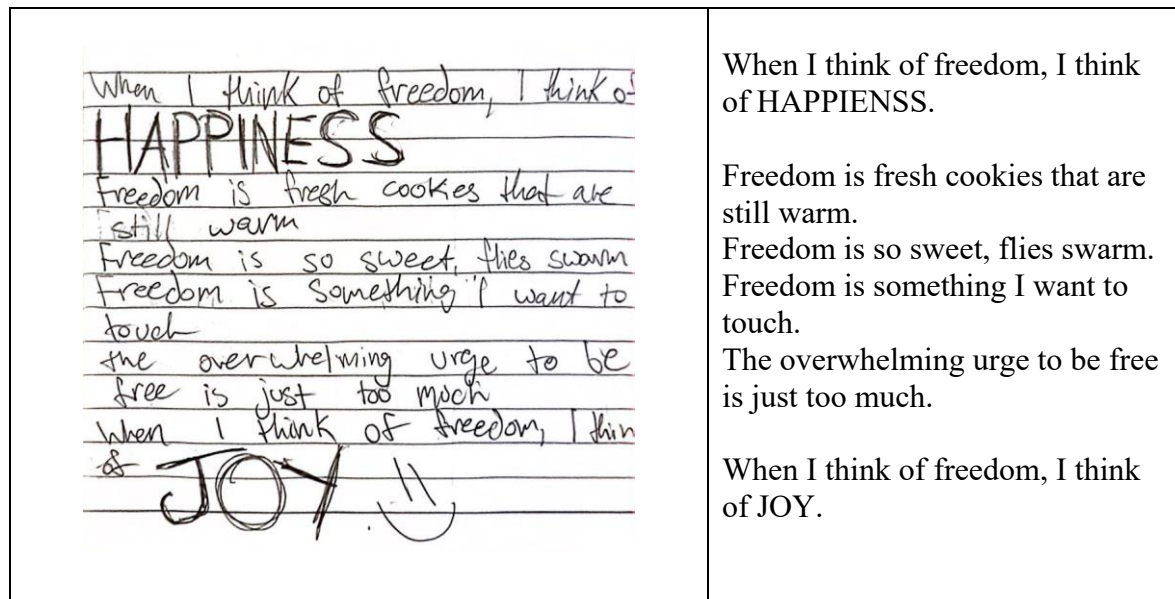 When I think of freedom, I think of
HAPPINESS
Freedom is fresh cookies that are
still warm
Freedom is so sweet, flies swarm
Freedom is something I want to
touch
the overwhelming urge to be
free is just too much
When I think of freedom, I thin
of JOY.
When I think of freedom, I think
of HAPPIENSS.
Freedom is fresh cookies that are
still warm.
Freedom is so sweet, flies swarm.
Freedom is something I want to
touch.
The overwhelming urge to be free
is just too much.
When I think of freedom, I think
of JOY.